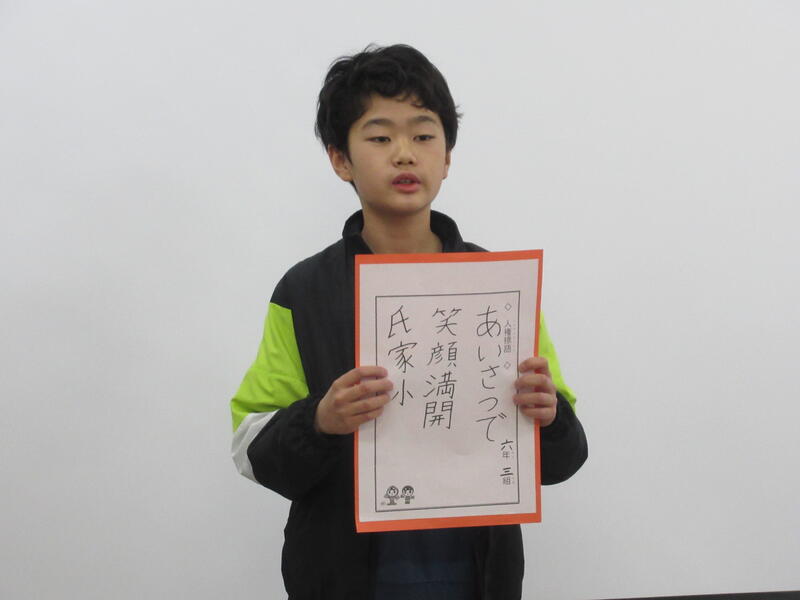 ◇人権標語◇
六年三組
あいさつで
笑顔満開
氏家小